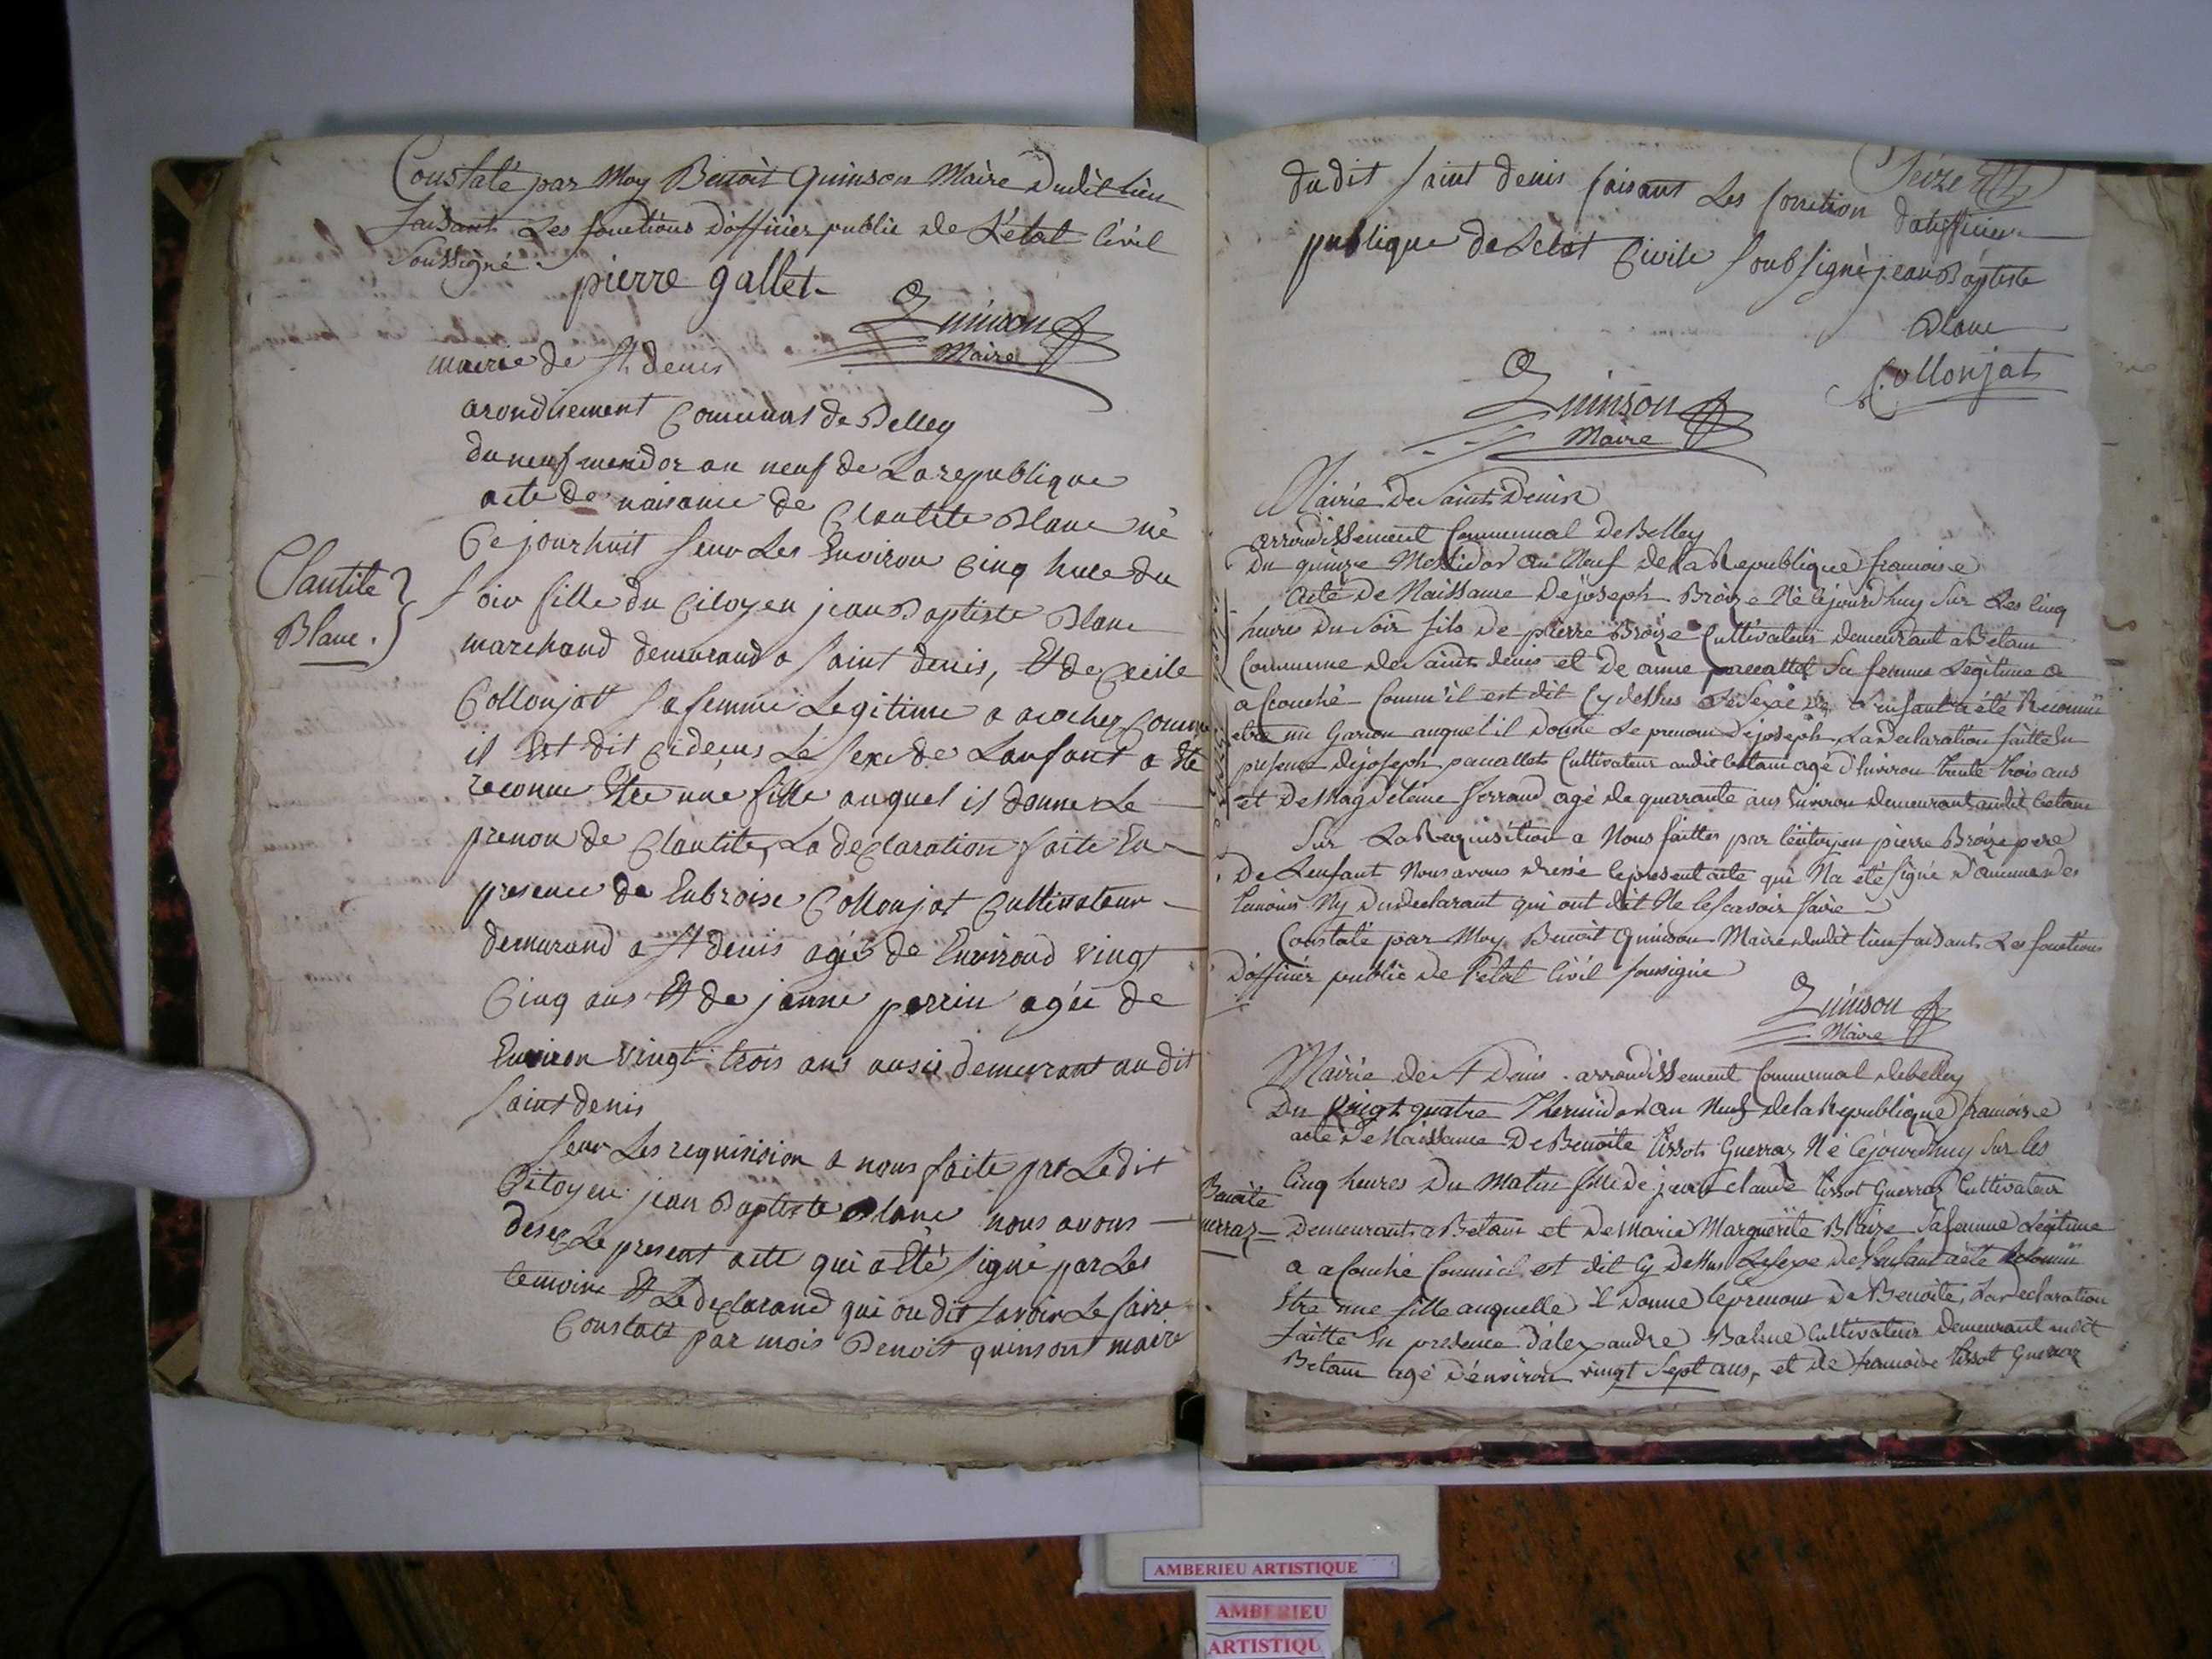 Constaté par Moy Benoit Quinson Maire dudit lieu
faisant Les fonctions d'officier public de L'état Civil
Soussigné
pierre gallet
Quinson
Maire
mairie de St denis
arondisement Comunal de Belley
du neuf mesidor an neuf de La republique
acte de naisance de Clautite Blanc né
Ce jourhuit seur Les Environ Cinq hure du
Clautite
Blanc.
soir fille du Citoyen jean Baptiste Blanc
marchand demurand a saint denis, Et de Cecile
Collonjat sa femme Legitime a acocher Comme
il Est dit cidecus Le sexe de Lanfant a Ete
reconue Etre une fille auquel il donne Le
prenon de Clautite, La declaration faite En
presence de Enbroise Collonjat Cultivateur
demurand a St denis agé de Environd vingt
Cinq ans Et de janne perrin agée de
Environ vingt trois ans ausi demeurant au dit
saint denis
seur Les requisision a nous faite par Ledit
Citoyen jean Baptiste Blanc nous avons
dese Le present acte qui a Eté signé par Les
temoins Et Le declarand qui on dit savoir Le faire
Constatt par mois Benoit quinsont maire
Seize
du dit saint denis faisant Les fonction d'atofficier
publique de L'etat Civile soubsigné jean Baptiste
Blanc
Collonjat
Quinson
Maire
Mairie de Saint Denis
arrondissement Communal De Belley
Du quinze Messidor an Neuf de la Republique francoise
Acte De Naissance De joseph Broize Né Cejourd'huy Sur Les Cinq
heures Du Soir fils De pierre Broize Cultivateur Demeurant a Betam
Commune de Saint denis et De anne pacallet Sa femme Legitime a
acouché Comm'il est dit Cy dessus Le Sexe de L'enfant a été Reconnu
etre un Garson auquel il Donne Le prenom De joseph La Declaration faitte En
presence De joseph pacallet Cultivateur audit betam agé d'Environ trente trois ans
et De Magdeleine ferrand agé de quarante ans Environ demeurant audit betam
Sur La Requisition a Nous faittes par le Citoyen pierre Broize pere
De L'enfant Nous avons dressé le present acte qui N'a été Signé D'aucun des
temoins Ny Du declarant qui ont dit Ne le Scavoir faire
Constaté par Moy Benoit Quinson Maire dudit lieu faisant Les fonctions
D'officier public de l'etat Civil soussigné
Quinson
Maire
Mairie de St Denis arrondissement Communal de belley
Du Vingt quatre Thermidor an Neuf de la Republique francoise
acte De Naissance De Benoite tissot Guerraz Né Cejourd'huy Sur les
Cinq heures Du Matin fille De jean Claude tissot Guerraz Cultivateur
Benoite
uerraz
Demeurant a Betam et De Marie Marguerite Blaize Sa femme Legitime
a acouché Comm'il est dit Cy dessus Le Sexe de L'enfant a été Reconnu
Etre une fille auquelle il Donne le prenom De Benoite, La Declaration
faitte En presence d'alexandre Balme Cultivateur Demeurant audit
Betam agé d'environ vingt Sept ans, et de francoise tissot Guerraz
AMBERIEU ARTISTIQUE
AMBERIEU
ARTISTIQU